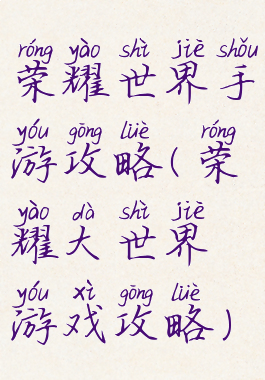 róng yào shì jiè shǒu
荣耀世界手
yóu gōng lüè róng
游攻略(荣
yào dà shì jiè
耀大世界
yóu xì gōng lüè
游戏攻略)